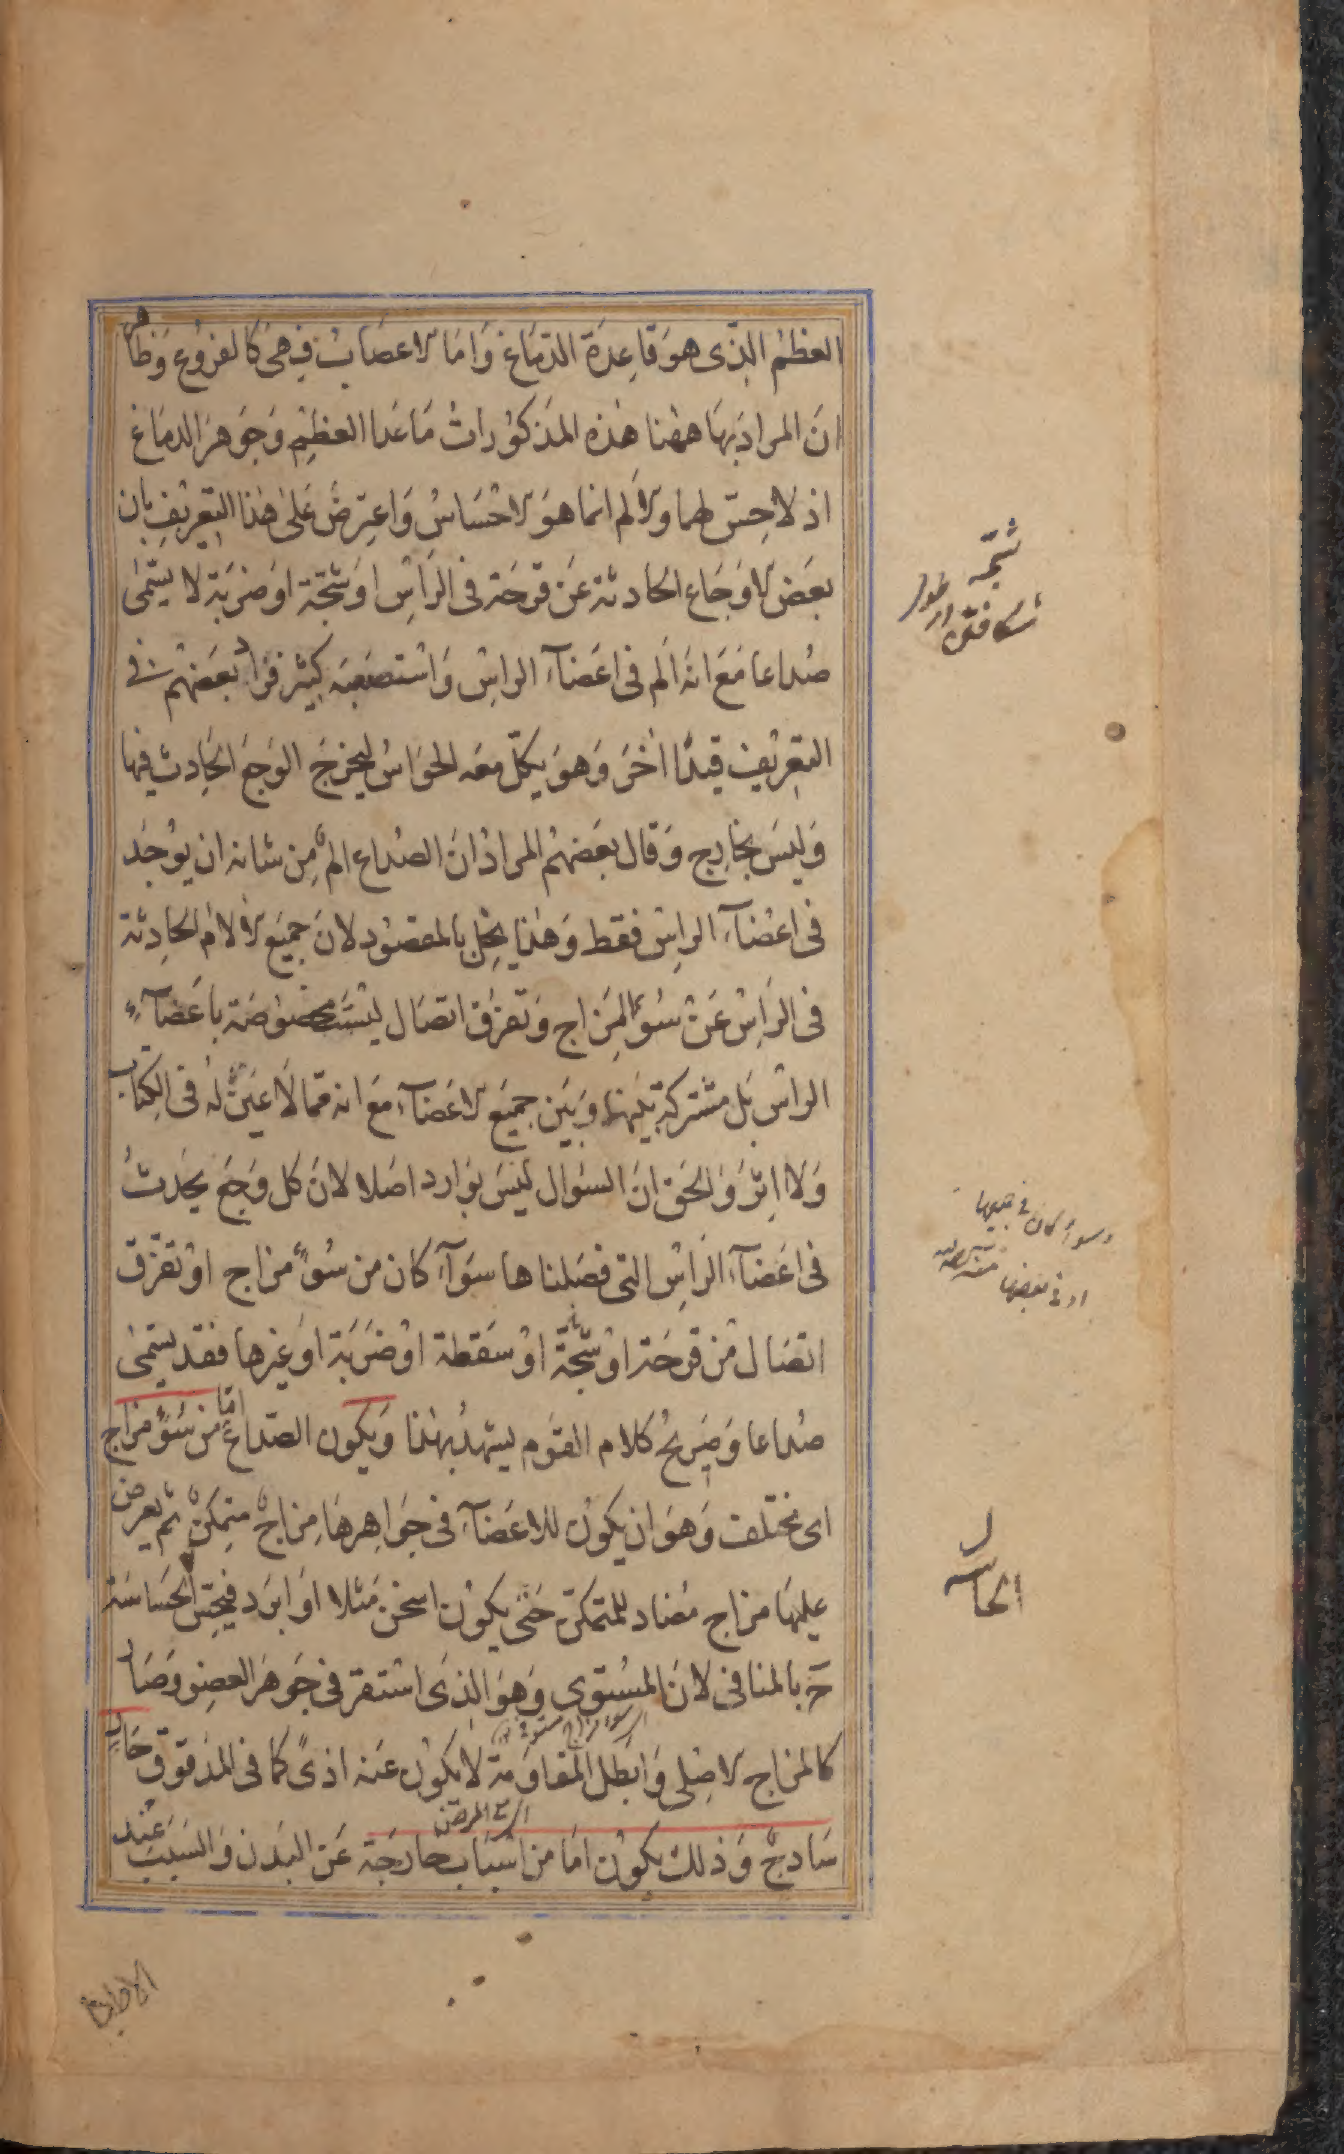 العظم الذى هو قاعدة الدماغ واما الاعصاب فهى كالفروع وظاهر
ان المراد بها ههنا هذه المذكورات ما عدا العظم وجوهر الدماغ
اذ لا حس لهما والالم انما هو الاحساس واعترض على هذا التعريف بان
بعض الاوجاع الحادثة عن قرحة فى الراس او شجة او ضربة لا يسمى
صداعا مع انه الم فى اعضاء الراس واستصعبه كثير فزاد بعضهم فى
التعريف قيدا اخر وهو يكل معه الحواس ليخرج الوجع الحادث فيها
وليس بخارج وقال بعضهم المراد ان الصداع الم من شانه ان يوجد
فى اعضاء الراس فقط وهذا يخل بالمقصود لان جميع الالام الحادثة
فى الراس عن سوء المزاج وتفرق اتصال ليست مخصوصة باعضاء
الراس بل مشتركة بينها وبين جميع الاعضاء مع انه مما لا عين له فى الكتاب
ولا اثر والحق ان السوال ليس بوارد اصلا لان كل وجع يحدث
فى اعضاء الراس التى فصلناها سواء كان من سوء مزاج او تفرق
اتصال من قرحة او شجة او سقطة او ضربة او غيرها فقد يسمى
صداعا وصريح كلام القوم يشهد بهذا ويكون الصداع اما من سوء مزاج
اى مختلف وهو ان يكون للاعضاء فى جواهرها مزاج متمكن ثم يعرض
عليها مزاج مضاد للمتمكن حتى يكون اسخن مثلا او ابرد فيحس الحساسة
ح بالمنافى لان المستوى وهو الذى استقر فى جوهر العضو وصار
كالمزاج الاصلى وابطل المقاومة لا يكون عنه اذى كما فى المدقوق حار
ساذج وذلك يكون اما من اسباب خارجة عن البدن والسبب عند
شجه
شكافتن
سواء كان فى جميعها
او فى بعضها
سوء مزاج مستوى
اى المرض
الاطباء